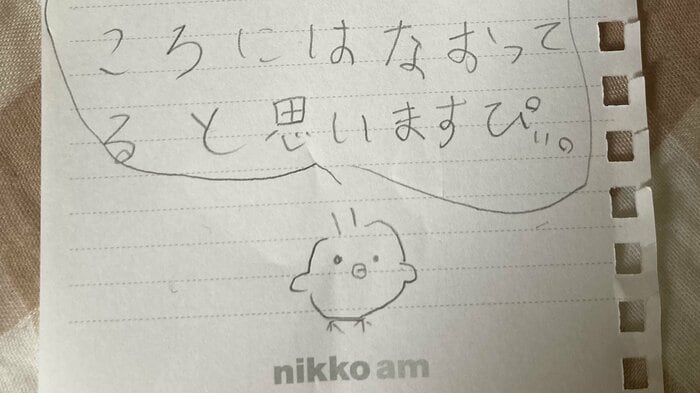 ころにはなおって
ると思いますぴ〃。
nikko am